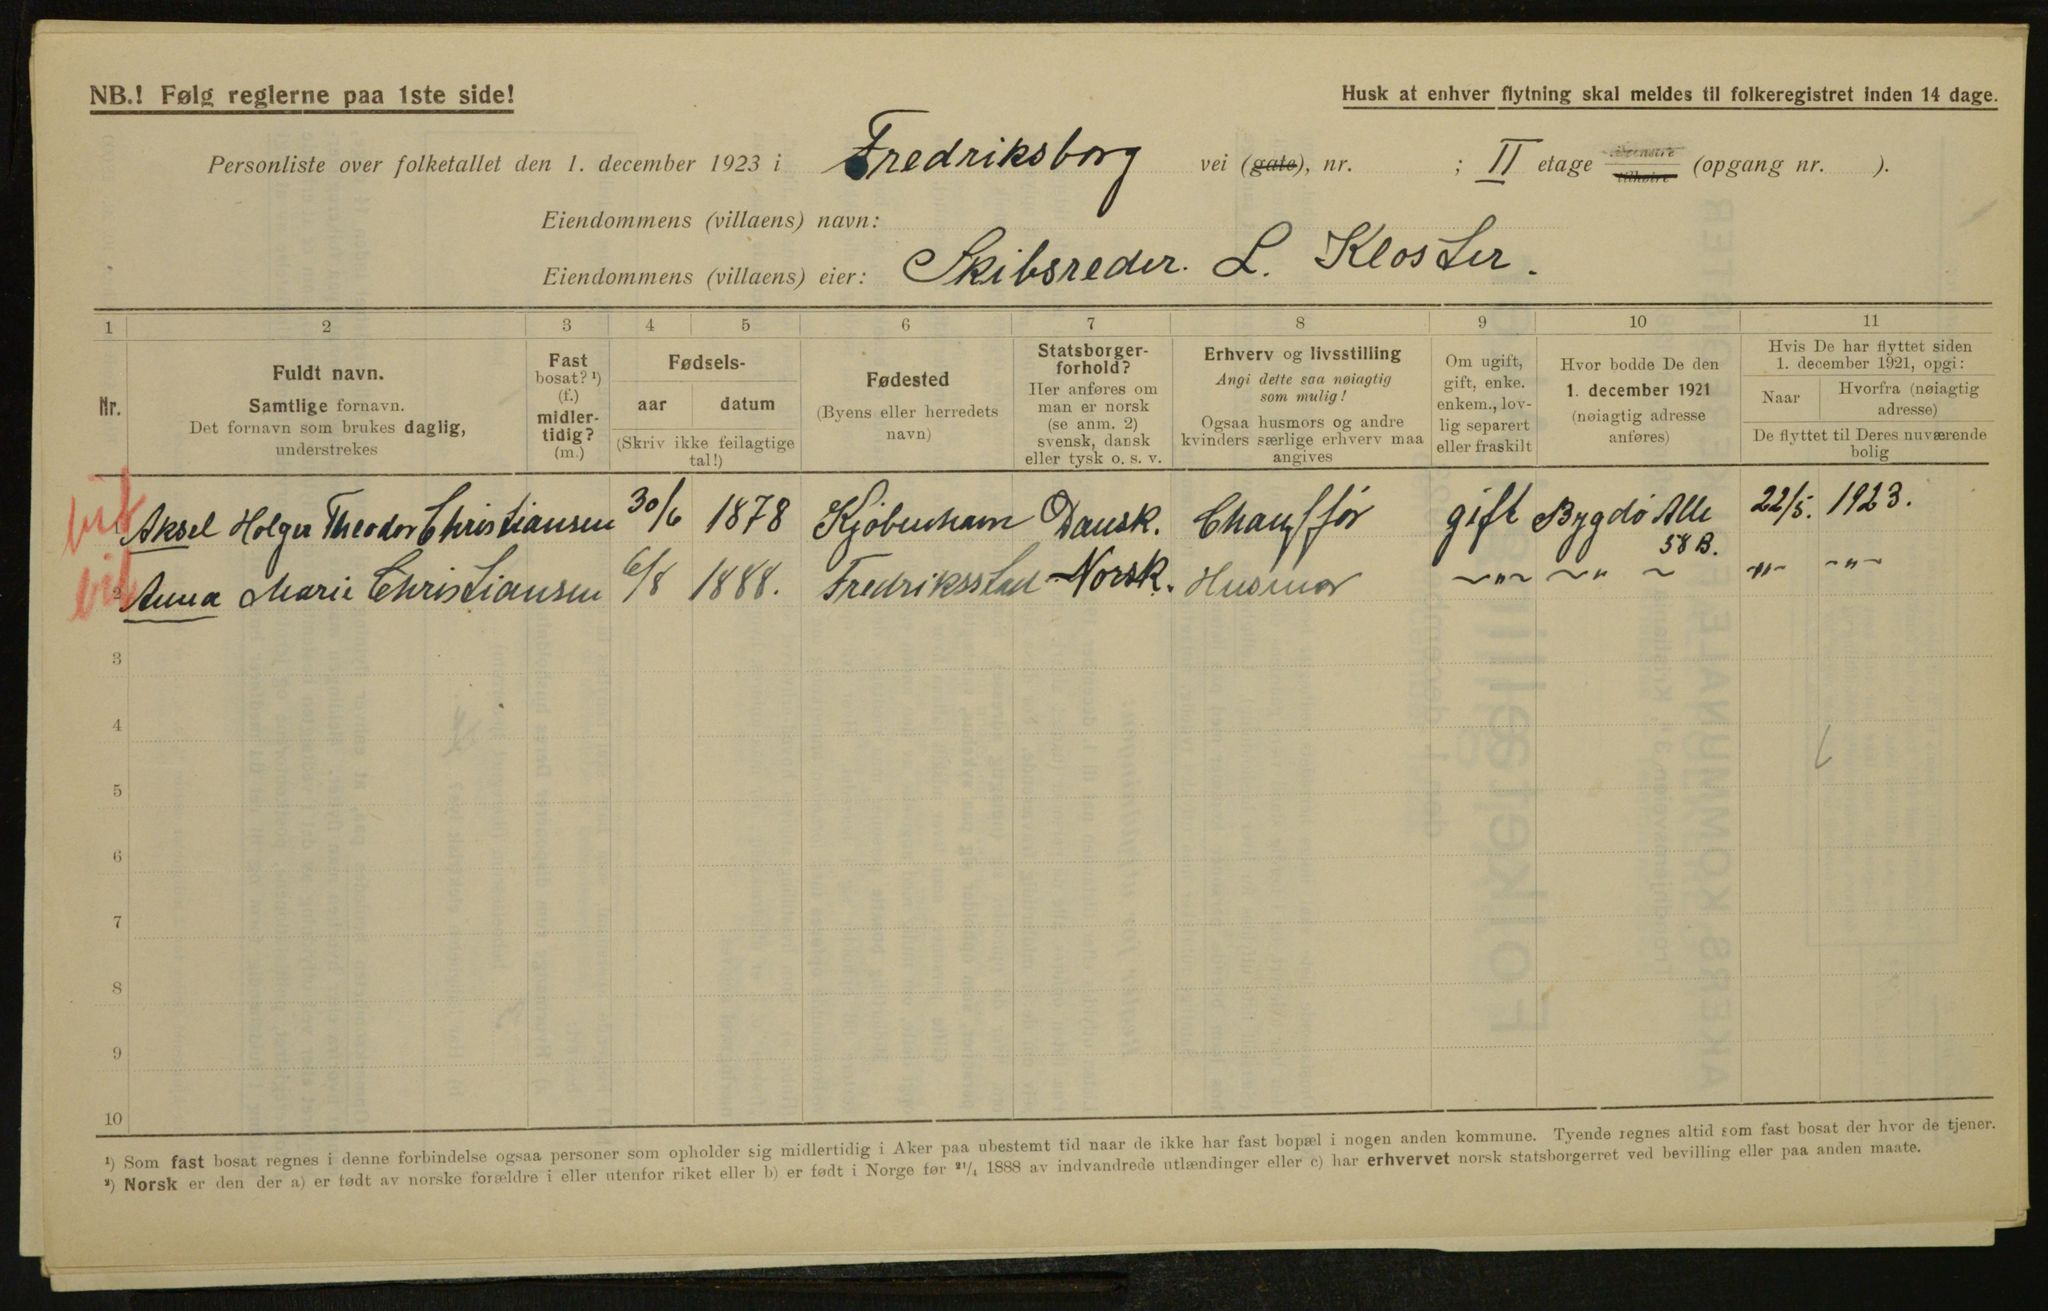 NB.! Følg reglerne paa 1ste side!
Husk at enhver flytning skal meldes til folkeregistret inden 14 dage.
Personliste over folketallet den 1. december 1923 i Fredriksborg vei (gate), nr. ; II etage tilvenstre tilhøire (opgang nr. ).
Eiendommens (villaens) navn:
Eiendommens (villaens) eier: Skibsreder. L. Kloster.
1 2 3 4 5 6 7 8 9 10 11
Nr.
Fuldt navn.
Samtlige fornavn.
Det fornavn som brukes daglig,
understrekes
Fast
bosat? ¹)
(f.)
midler-
tidig?
(m.)
Fødsels-
aar datum
(Skriv ikke feilagtige
tal!)
Fødested
(Byens eller herredets
navn)
Statsborger-
forhold?
Her anføres om
man er norsk
(se anm. 2)
svensk, dansk
eller tysk o. s. v.
Erhverv og livsstilling
Angi dette saa nøiagtig
som mulig!
Ogsaa husmors og andre
kvinders særlige erhverv maa
angives
Om ugift,
gift, enke.
enkem., lov-
lig separert
eller fraskilt
Hvor bodde De den
1. december 1921
(nøiagtig adresse
anføres)
Hvis De har flyttet siden
1. december 1921, opgi:
Naar
Hvorfra (nøiagtig
adresse)
De flyttet til Deres nuværende
bolig
Aksel Holger Theodor Christiansen 30/6 1878 Kjøbenhavn Dansk. Chauffør gift Bygdø Alle 58 B. 22/5. 1923.
2 Anna Marie Christiansen 6/8 1888. Fredriksstad Norsk. Husmor ~"~ ~" ~ ~"~ -"-
3
4
5
6
7
8
9
10
¹) Som fast bosat regnes i denne forbindelse ogsaa personer som opholder sig midlertidig i Aker paa ubestemt tid naar de ikke har fast bopæl i nogen anden kommune. Tyende regnes altid som fast bosat der hvor de tjener.
²) Norsk er den der a) er født av norske forældre i eller utenfor riket eller b) er født i Norge før ²¹/₄ 1888 av indvandrede utlændinger eller c) har erhvervet norsk statsborgerret ved bevilling eller paa anden maate.